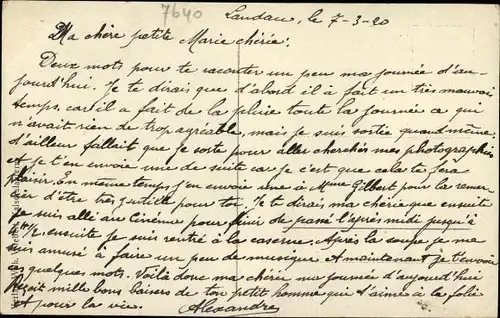 7640
Landau, le 7-3-20
Ma chère petite Marie chérie.
Deux mots pour te raconter un peu ma journée d'au-
jourd'hui. Je te dirais que d'abord il à fait un très mauvais
temps, car il a fait de la pluie toute la journée ce qui
n'avait rien de trop agréable, mais je suis sortie quand même
d'ailleur fallait que je sorte pour aller cherchés mes photographies
et je t'en envoie une de suite car je c'est que cela te fera
plaisir. En même temps j'en envoie une à Mme Gilbert pour la remer-
cier d'être très gentille pour toi. Je te dirais ma chérie que ensuite
je suis allé au Cinéma pour finir de passé l'après midi jusqu'à
4 h 1/2 ensuite je suis rentré à la caserne. Après la soupe je me
suis amusé à faire un peu de musique. Et maintenant je t'envoie
ces quelques mots. Voilà donc ma chérie ma journée d'aujourd'hui
Reçoit mille bons baisers de ton petit homme qui t'aime à la folie
et pour la vie. Alexandre